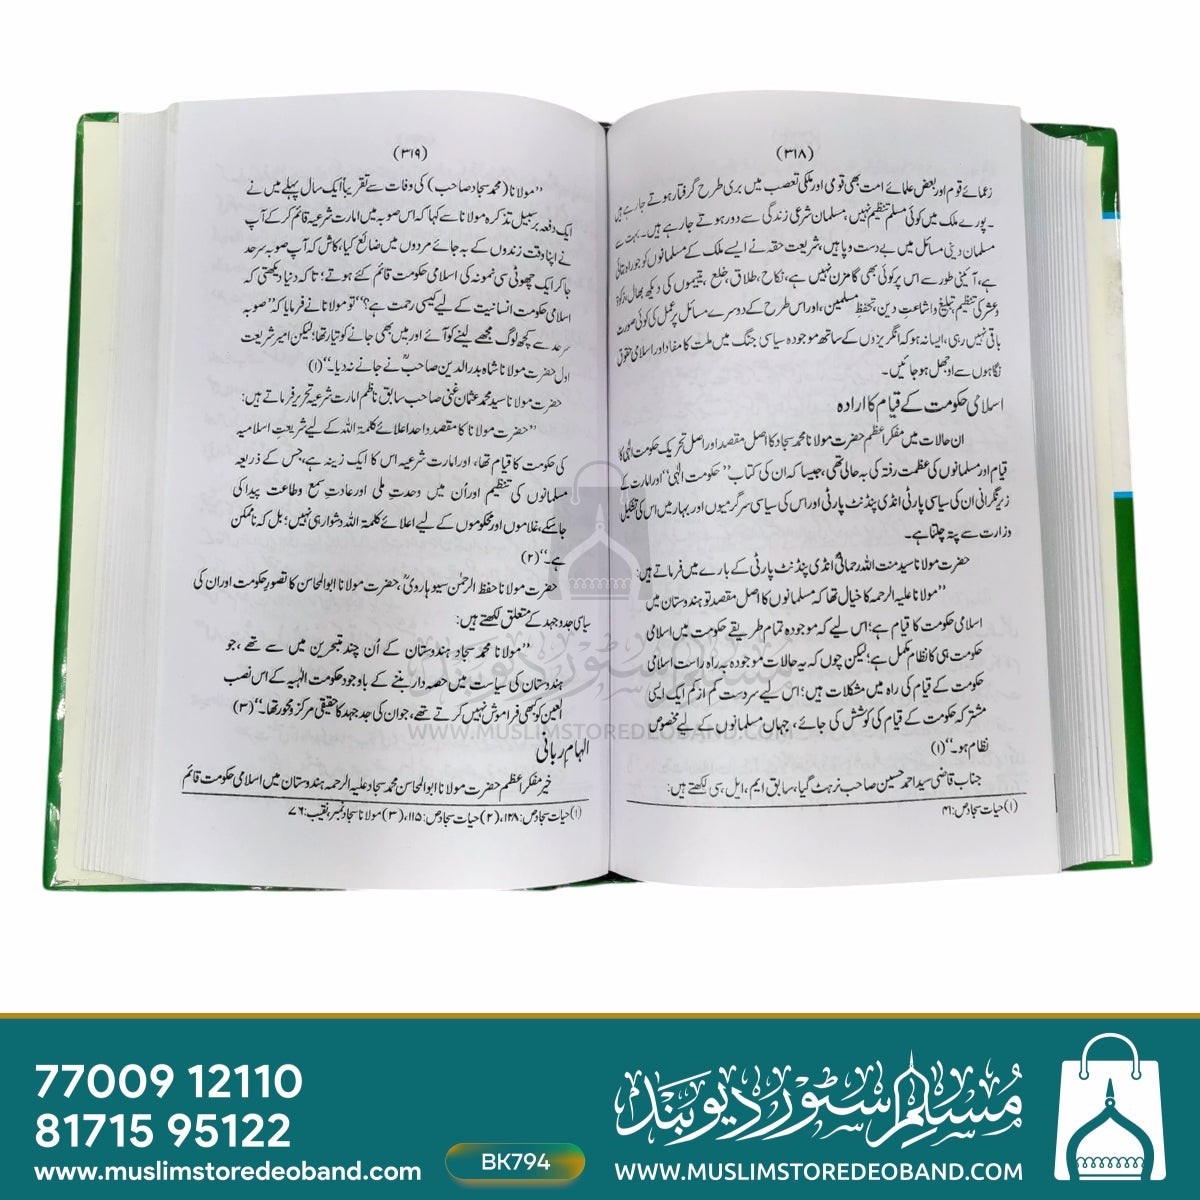 (۳۱۸)
زعمائے قوم اور بعض علمائے امت بھی قومی اور ملکی تعصب میں بری طرح گرفتار ہوتے جارہے ہیں
۔ پورے ملک میں کوئی مسلم تنظیم نہیں، مسلمان شرعی زندگی سے دور ہوتے جارہے ہیں۔ بہت سے
مسلمان دینی مسائل میں بے دست وپا ہیں، شریعت حقہ نے ایسے ملک کے مسلمانوں کو جو راہ بتائی
ہے، آئینی طور سے اس پر کوئی بھی گامزن نہیں ہے، نکاح، طلاق، خلع، یتیموں کی دیکھ بھال، زکوٰۃ
وعشر کی تنظیم، تبلیغ واشاعتِ دین، تحفظ مسلمین، اور اس طرح کے دوسرے مسائل پر عمل کی کوئی صورت
باقی نہیں رہی، ایسا نہ ہو کہ انگریزوں کے ساتھ موجودہ سیاسی جنگ میں ملت کا مفاد اور اسلامی حقوق
نگاہوں سے اوجھل ہوجائیں۔
اسلامی حکومت کے قیام کا ارادہ
ان حالات میں مفکر اعظم حضرت مولانا محمد سجاد کا اصل مقصد اور اصل تحریک حکومت الٰہی کا
قیام اور مسلمانوں کی عظمت رفتہ کی بہ حالی تھی، جیسا کہ ان کی کتاب ’’حکومت الٰہی‘‘ اور امارت کے
زیرنگرانی ان کی سیاسی پارٹی انڈی پنڈنٹ پارٹی اور اس کی سیاسی سرگرمیوں اور بہار میں اس کی تشکیل
وزارت سے پتہ چلتا ہے۔
حضرت مولانا سید منت اللہ رحمانیؒ انڈی پنڈنٹ پارٹی کے بارے میں فرماتے ہیں:
’’مولانا علیہ الرحمہ کا خیال تھا کہ مسلمانوں کا اصل مقصد تو ہندوستان میں
اسلامی حکومت کا قیام ہے؛ اس لیے کہ موجودہ تمام طریقے حکومت میں اسلامی
حکومت ہی کا نظام مکمل ہے؛ لیکن چوں کہ بہ حالات موجودہ بہ راہ راست اسلامی
حکومت کے قیام کی راہ میں مشکلات ہیں؛ اس لیے سر دست کم از کم ایک ایسی
مشترکہ حکومت کے قیام کی کوشش کی جائے، جہاں مسلمانوں کے لیے مخصوص
نظام ہو۔‘‘ (۱)
جناب قاضی سید احمد حسین صاحب نرہٹ گیا، سابق ایم، ایل، سی لکھتے ہیں:
(۱) حیات سجاد ص: ۴۱
(۳۱۹)
’’مولانا (محمد سجاد صاحب) کی وفات سے تقریباً ایک سال پہلے میں نے
ایک دفعہ برسبیل تذکرہ مولانا سے کہا کہ اس صوبہ میں امارت شرعیہ قائم کرکے آپ
نے اپنا وقت زندوں کے بہ جائے مردوں میں ضائع کیا، کاش کہ آپ صوبہ سرحد
جاکر ایک چھوٹی سی نمونہ کی اسلامی حکومت قائم کئے ہوتے؛ تاکہ دنیا دیکھتی کہ
اسلامی حکومت انسانیت کے لیے کیسی رحمت ہے؟‘‘ تو مولانا نے فرمایا کہ ’’صوبہ
سرحد سے کچھ لوگ مجھے لینے کو آئے اور میں بھی جانے کو تیار تھا؛ لیکن امیر شریعت
اول حضرت مولانا شاہ بدرالدین صاحبؒ نے جانے نہ دیا۔‘‘ (۱)
حضرت مولانا سید محمد عثمان غنی صاحب سابق ناظم امارت شرعیہ تحریر فرماتے ہیں:
’’حضرت مولانا کا مقصد واحد اعلائے کلمۃ اللہ کے لیے شریعتِ اسلامیہ
کی حکومت کا قیام تھا، اور امارت شرعیہ اس کا ایک زینہ ہے، جس کے ذریعہ
مسلمانوں کی تنظیم اور اُن میں وحدتِ ملی اور عادتِ سمع وطاعت پیدا کی
جاسکے، غلاموں اور محکوموں کے لیے اعلائے کلمۃ اللہ دشوار ہی نہیں؛ بل کہ ناممکن
ہے۔‘‘ (۲)
حضرت مولانا حفظ الرحمٰن سیوہارویؒ، حضرت مولانا ابوالمحاسن کا تصورِ حکومت اور ان کی
سیاسی جدوجہد کے متعلق لکھتے ہیں:
’’مولانا محمد سجاد ہندوستان کے اُن چند متبحرین میں سے تھے، جو
ہندوستان کی سیاست میں حصہ دار بننے کے باوجود حکومت الٰہیہ کے اس نصب
العین کو بھی فراموش نہیں کرتے تھے، جو ان کی جد جہد کا حقیقی مرکز ومحور تھا۔‘‘ (۳)
الہام ربانی
خیر مفکر اعظم حضرت مولانا ابوالمحاسن محمد سجاد علیہ الرحمہ ہندوستان میں اسلامی حکومت قائم
(۱) حیات سجاد ص: ۱۴۸، (۲) حیات سجاد ص: ۱۱۵، (۳) مولانا سجاد نمبر، نقیب: ۷۶
مسلم سٹور دیوبند
WWW.MUSLIMSTOREDEOBAND.COM
77009 12110
81715 95122
www.muslimstoredeoband.com
BK794
مسلم سٹور دیوبند
WWW.MUSLIMSTOREDEOBAND.COM